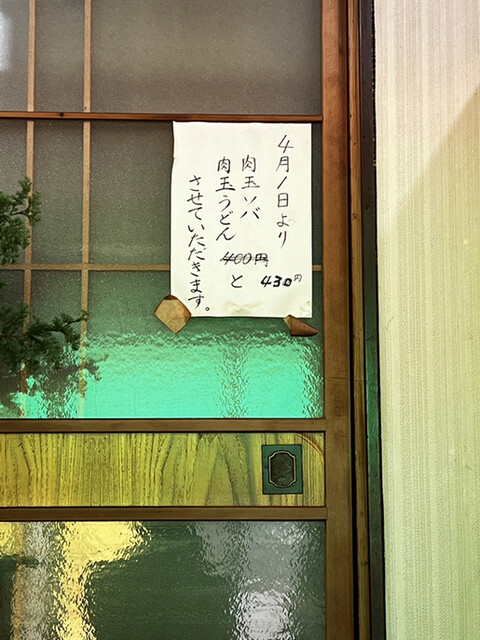 4月1日より
肉玉ソバ
肉玉うどん
400円
430円
と
させていただきます。